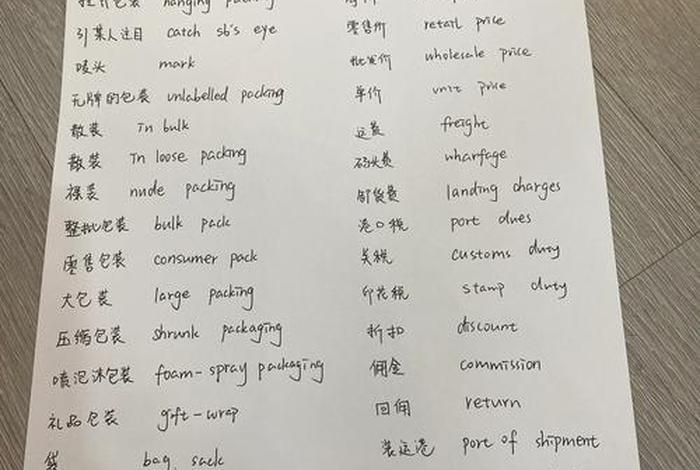 挂式包装 hanging packing
引某人注目 catch sb's eye
唛头 mark
无牌的包装 unlabelled packing
散装 In bulk
散装 In loose packing
裸装 nude packing
整批包装 bulk pack
零售包装 consumer pack
大包装 large packing
压缩包装 shrunk packaging
喷泡沫包装 foam-spray packaging
礼品包装 gift-wrap
袋 bag sack
零售价 retail price
批发价 wholesale price
单价 unit price
运费 freight
码头费 wharfage
卸货费 landing charges
港口税 port dues
关税 customs duty
印花税 stamp duty
折扣 discount
佣金 commission
回佣 return
装运港 port of shipment